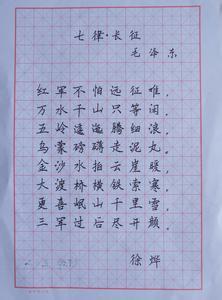 七律·长征
毛泽东
红军不怕远征难,
万水千山只等闲,
五岭逶迤腾细浪,
乌蒙磅礴走泥丸,
金沙水拍云崖暖,
大渡桥横铁索寒,
更喜岷山千里雪,
三军过后尽开颜。
徐烨